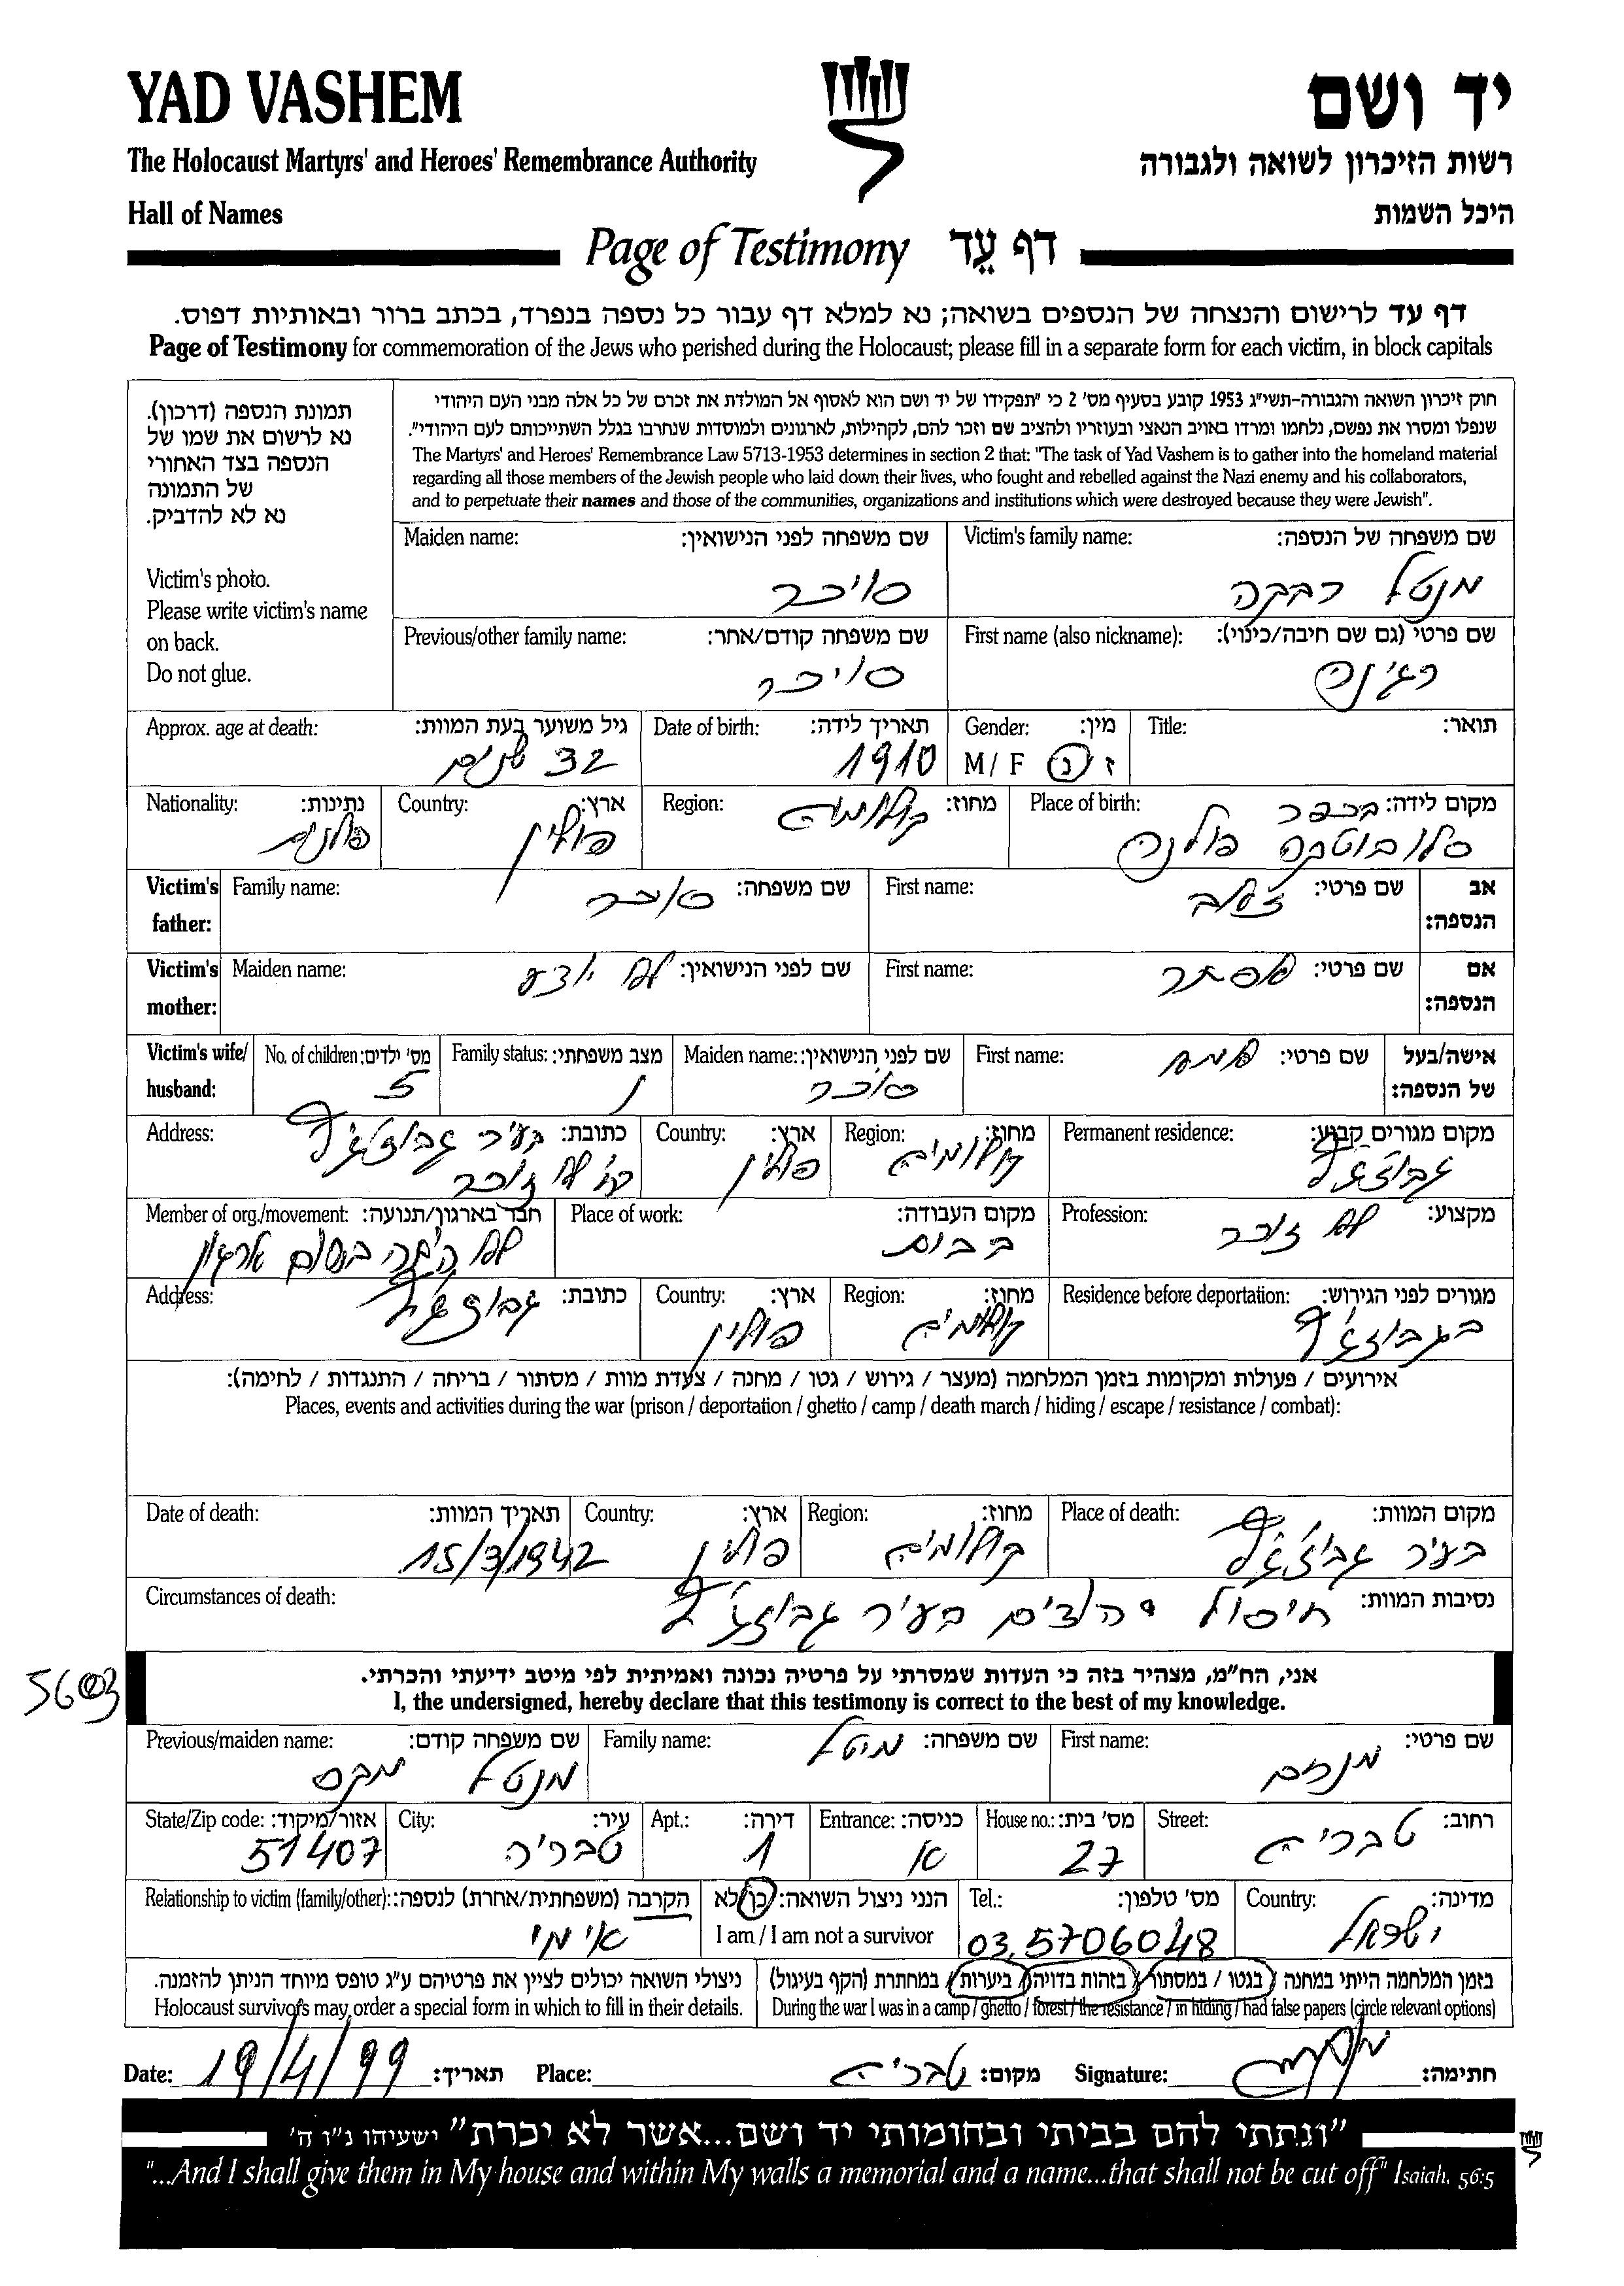 YAD VASHEM
יד ושם
The Holocaust Martyrs' and Heroes' Remembrance Authority
רשות הזיכרון לשואה ולגבורה
Hall of Names
היכל השמות
Page of Testimony דף עֵד
דף עד לרישום והנצחה של הנספים בשואה; נא למלא דף עבור כל נספה בנפרד, בכתב ברור ובאותיות דפוס.
Page of Testimony for commemoration of the Jews who perished during the Holocaust; please fill in a separate form for each victim, in block capitals
תמונת הנספה (דרכון).
נא לרשום את שמו של
הנספה בצד האחורי
של התמונה
נא לא להדביק.
Victim's photo.
Please write victim's name
on back.
Do not glue.
חוק זיכרון השואה והגבורה-תשי"ג 1953 קובע בסעיף מס' 2 כי "תפקידו של יד ושם הוא לאסוף אל המולדת את זכרם של כל אלה מבני העם היהודי
שנפלו ומסרו את נפשם, נלחמו ומרדו באויב הנאצי ובעוזריו ולהציב שם וזכר להם, לקהילות, לארגונים ולמוסדות שנחרבו בגלל השתייכותם לעם היהודי".
The Martyrs' and Heroes' Remembrance Law 5713-1953 determines in section 2 that: "The task of Yad Vashem is to gather into the homeland material
regarding all those members of the Jewish people who laid down their lives, who fought and rebelled against the Nazi enemy and his collaborators,
and to perpetuate their names and those of the communities, organizations and institutions which were destroyed because they were Jewish".
Victim's family name: שם משפחה של הנספה:
מנטל רבקה
Maiden name: שם משפחה לפני הנישואין:
סויכר
First name (also nickname): שם פרטי (גם שם חיבה/כינוי):
רג'נה
Previous/other family name: שם משפחה קודם/אחר:
סויכר
Title: תואר:
Gender: מין:
M / F ז / נ
Date of birth: תאריך לידה:
1910
Approx. age at death: גיל משוער בעת המוות:
32 שנים
Place of birth: מקום לידה: בכפר
סלובוטקה פולנה
Region: מחוז:
קולומיה
Country: ארץ:
פולין
Nationality: נתינות:
פולנית
Victim's father: אב הנספה:
First name: שם פרטי:
Family name: שם משפחה: סוכר
Victim's mother: אם הנספה:
First name: שם פרטי: אסתר
Maiden name: שם לפני הנישואין: לא יודע
Victim's wife/ husband: אישה/בעל של הנספה:
First name: שם פרטי:
Maiden name: שם לפני הנישואין:
סוכר
Family status: מצב משפחתי:
No. of children: מס' ילדים:
5
Permanent residence: מקום מגורים קבוע:
גבוזג'ץ
Region: מחוז:
קולומיה
Country: ארץ:
פולין
Address: כתובת: בעיר גבוזג'ץ
לא זוכר
Profession: מקצוע:
לא זוכר
Place of work: מקום העבודה:
בבית
Member of org./movement: חבר בארגון/תנועה:
לא היתה בשום ארגון
Residence before deportation: מגורים לפני הגירוש:
בגבוזג'ץ
Region: מחוז:
קולומיה
Country: ארץ:
פולין
Address: כתובת: גבוזג'ץ
אירועים / פעולות ומקומות בזמן המלחמה (מעצר / גירוש / גטו / מחנה / צעדת מוות / מסתור / בריחה / התנגדות / לחימה):
Places, events and activities during the war (prison / deportation / ghetto / camp / death march / hiding / escape / resistance / combat):
Place of death: מקום המוות:
בעיר גבוזג'ץ
Region: מחוז:
קולומיה
Country: ארץ:
פולין
Date of death: תאריך המוות:
15/3/1942
Circumstances of death: נסיבות המוות: חיסול יהודים בעיר גבוזג'ץ
5603
אני, הח"מ, מצהיר בזה כי העדות שמסרתי על פרטיה נכונה ואמיתית לפי מיטב ידיעתי והכרתי.
I, the undersigned, hereby declare that this testimony is correct to the best of my knowledge.
First name: שם פרטי:
מנחם
Family name: שם משפחה: מיטל
Previous/maiden name: שם משפחה קודם:
מנטל מקס
Street: רחוב:
טבריה
House no.: מס' בית:
27
Entrance: כניסה:
א
Apt.: דירה:
1
City: עיר:
טבריה
State/Zip code: אזור/מיקוד:
51407
Country: מדינה:
ישראל
Tel.: מס' טלפון:
03.5706048
הנני ניצול השואה: כן/לא
I am / I am not a survivor
Relationship to victim (family/other): הקרבה (משפחתית/אחרת) לנספה:
אימי
בזמן המלחמה הייתי במחנה / בגטו / במסתור / בזהות בדויה / ביערות / במחתרת (הקף בעיגול)
During the war I was in a camp / ghetto / forest / the resistance / in hiding / had false papers (circle relevant options)
ניצולי השואה יכולים לציין את פרטיהם ע"ג טופס מיוחד הניתן להזמנה.
Holocaust survivors may order a special form in which to fill in their details.
Date: 19/4/99 תאריך: Place: טבריה מקום: Signature: חתימה:
"ונתתי להם בביתי ובחומותי יד ושם...אשר לא יכרת" ישעיהו נ"ו ה'
"...And I shall give them in My house and within My walls a memorial and a name...that shall not be cut off" Isaiah, 56:5